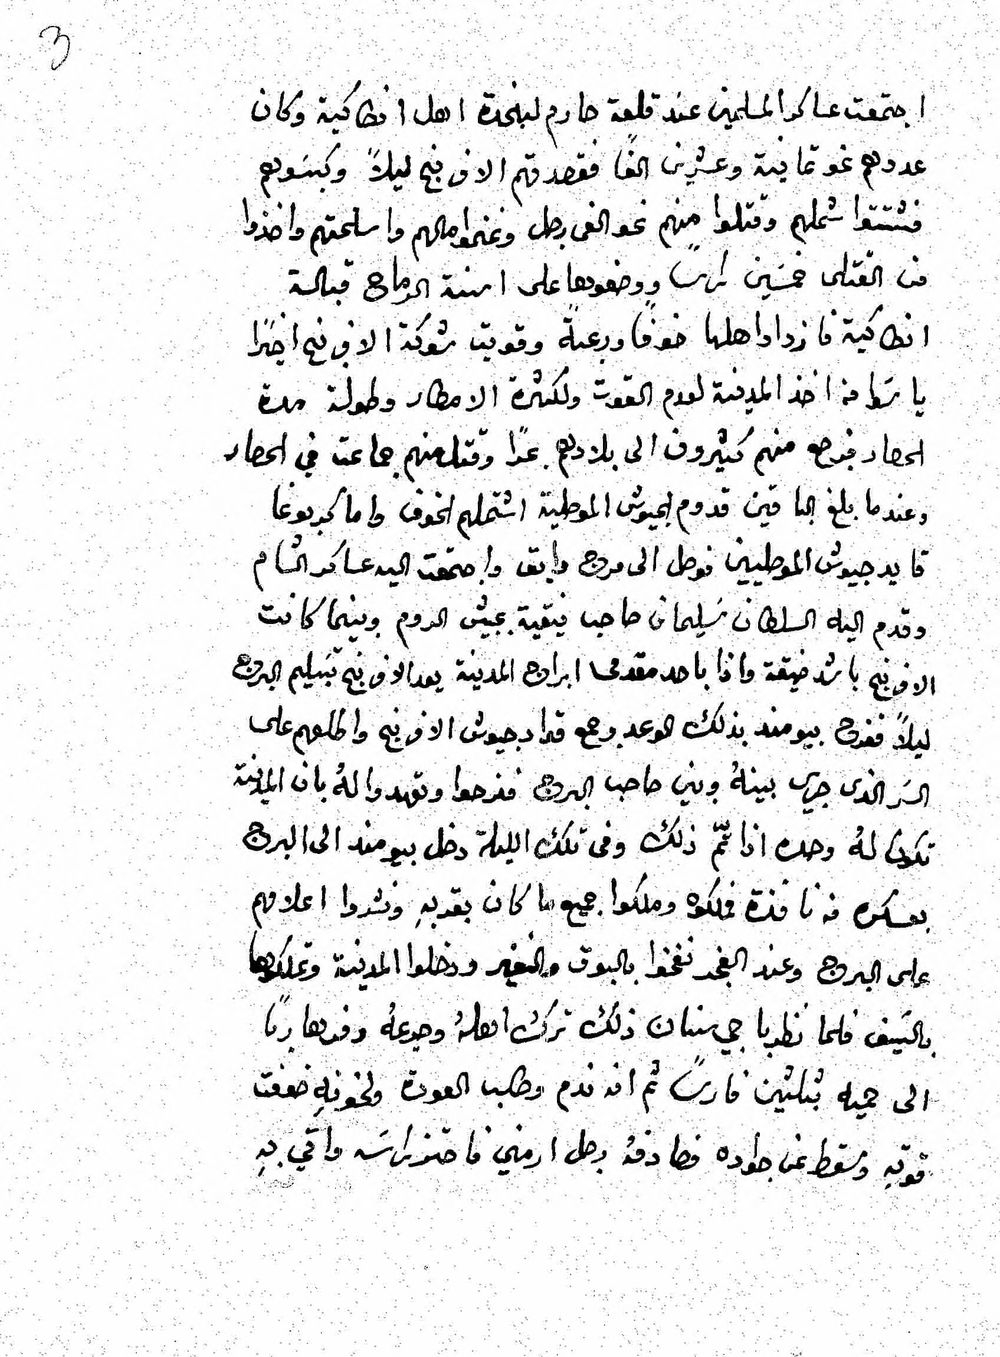 3
اجتمعت عساكر المسلمين عند قلعة حارم لينجدة اهل انطاكية وكان
عددهم نحو ثمانية وعشرين الفًا فقصدتهم الافرنج ليلاً وكبسوهم
فشتتوا شملهم وقتلوا منهم نحو الفى رجل وغنموا مالهم واسلحتهم واخذوا
من القتلى خمسين راسًا ووضعوها على اسنة الرماح قبالة
انطاكية فازداد اهلها خوفًا ورعبةً وقويت شوكة الافرنج اخيرًا
يا سوا من اخذ المدينة لعدم القوت ولكثرة الامطار وطولة مدة
الحصار فرجع منهم كثيرون الى بلادهم برًا وقتل منهم جماعة في الحصار
وعندما بلغ الباقين قدوم الجيوش الموصلية اشتملهم الخوف واما كربوغا
قايد جيوش الموصليين فوصل الى مرج دابق واجتمعت اليه عساكر الشام
وقدم اليه السلطان سليمان صاحب نيقية بجيش الروم وبينما كانت
الافرنج باشد ضيقة واذا باحد مقدمى ابراج المدينة يعد الافرنج بتسليم البرج
ليلاً ففرح بيومند بذلك الوعد وجمع قواد جيوش الافرنج واطلعهم على
السر الذى جرى بينهُ وبين صاحب البرج ففرحوا وتعهدوا لهُ بان المدينة
تكون لهُ وحده اذا تمّ ذلك وفى تلك الليلة دخل بيومند الى البرج
بعسكره من نافذة فملكوه وملكوا جميع ما كان بقربهِ ونشروا اعلامهم
على البرج وعند الفجر نفخوا بالبوق والنفير ودخلوا المدينة وتملكوها
بالسيف فلما نظر ياجي سنان ذلك ترك اهلهُ وجموعهُ وفر هاربًا
الى حميه بثلثين فارسًا ثم انه ندم وطلب العودة ولخوفهِ ضعفت
قوتهِ وسقط عن جواده فصادفهُ رجل ارمني فاحتز راسه واتي بهِ